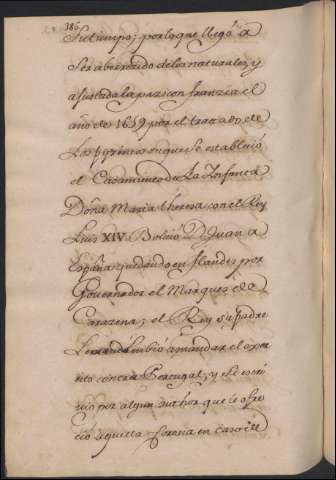 386
Su tiempo; por lo que llegó a
Ser aborrecido de los naturales, y
ajustada la paz con franzia el
año de 1659 por el tratado de
Los pyrineos en que Se estableció
el Casamiento de La Infanta
Doña Maria theresa con el Rey
Luis XIV. Bolvió Dn Juan a
España, quedando en flandes por
Governador el Marques de
Carazena; el Rey su Padre
Le embió a mandar el exer
cito contra Portugal, y Se escri
vió por algun author que le ofre
ció aquella Corona en